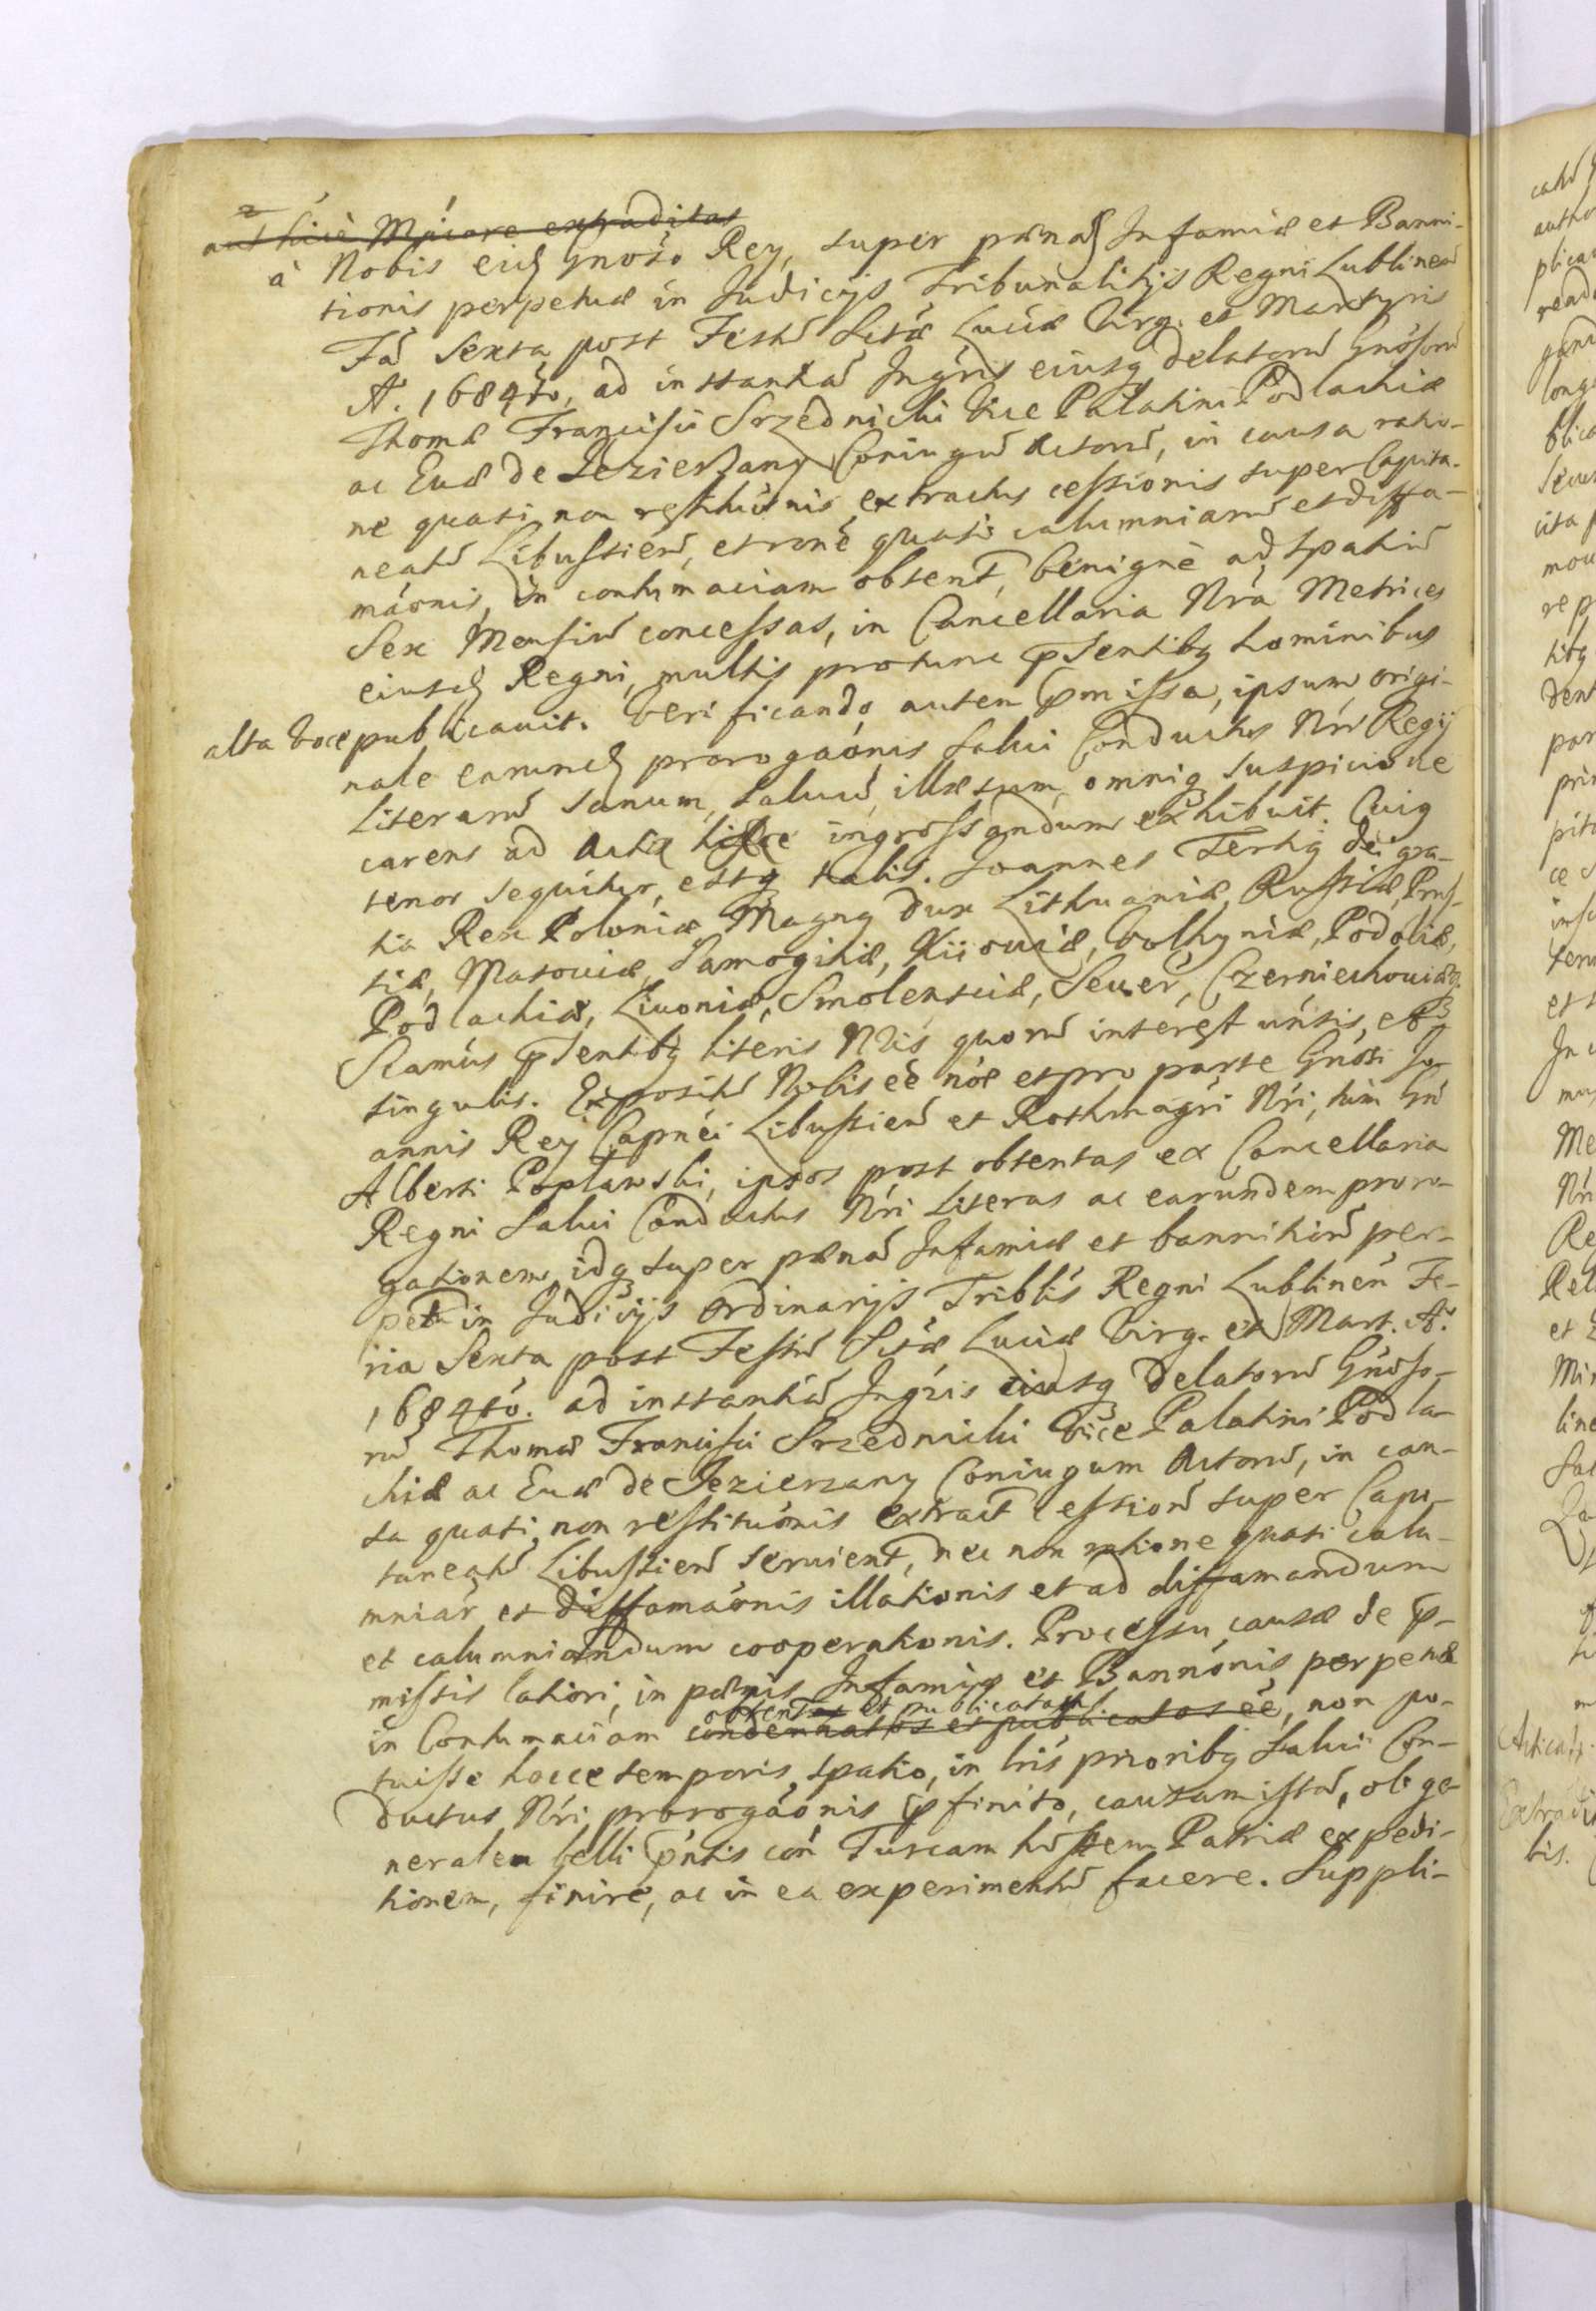 authicè Mjore extraditas
à Nobis eid Gnoso Rey, super pænas Infamiæ et Banni-
tionis perpetuæ in Judicijs Tribunalitijs Regni Lublinen
Fâ Sexta post Festũ Sctæ Luciæ Virg. et Martyris
Aº. 1684to, ad instantiã Ingris eiusq delatorũ Gnosorũ
Thomæ Francisci Srzednicki Vice Palatini Podlachiæ
ac Euæ de Jezierzany Coniugũ Actorũ, in causa ratio-
ne quasi non restitũonis extractus cessionis super Capita-
neatũ Libussien, et rone quasi calumniarũ et diffa-
máonis, in contumaciam obtent, benignè ad spatiũ
Sex Mensiũ concessas, in Cancellaria Nrá Metrices
eiusd Regni, multis protunc psentibq hominibus
alta voce publicauit. Verificando autem pmissa, ipsum origi-
nale earund prorogaónis Salui Conductus Nri Regij
literarũ sanum, saluũ, illæsum, omniq suspicione
carens ad Acta hæce ingrossandum exhibuit. Cuiq
tenor sequitur, estq talis. Joannes Tertiq dei gra-
tia Rex Poloniæ, Magnq dux Lithuaniæ, Russiæ, Prus-
siæ, Masouiæ, Samogitiæ, Kiiouiæ, Volhyniæ, Podoliæ,
Podlachiæ, Liuoniæ, Smolensciæ, Seuer, Czerniechouiæq.
Scamús psentibq literis Nris quorũ interest unsis, et
singulis. Expositũ Nobis eé nóe et pro parte Gnósi Jo-
annis Rey Capnéi Libussien et Rothmagri Nri, tùm Gn
Alberti Popławski, ipsos post obtentas ex Cancellaria
Regni Salui Conductus Nri Literas ac earundem proro-
gationem, idq super pænã Infamiæ et bannitiõ per-
pet in Judicijs Ordinarijs Triblis Regni Lublinen Fe-
ria Sexta post Festũ Sctæ Luciæ Virg. et Mart. Aº.
1684to. ad instantiã Ingris eiusq Delatorũ Gnoso-
rũ Thomæ Francisci Srzednicki Vice Palatini Podla-
chiæ ac Euæ de Jezierzany Coniugum Actorũ, in cau-
sa quasi non restituónis extract cessionũ super Capi-
taneatũ Libussien seruient, nec non ratione quasi calu-
mniar et diffamaónis illationis et ad diffamandum
et calumniandum cooperationis. Processu causæ de p-
missis latiori, in pænis Infamiæ et Bannónis perpetuæ
obtentas et publicatas
in Contumaciam condemnatos et publicatos eé, non po-
tuisse hocce temporis spatio, in lris prioribq Salui Con-
ductus Nri prorogáonis pfinito, causam istã, ob ge-
neralem belli pntis con Turcam hostem Patriæ expedi-
tionem, finire, ac in ea experimentũ facere. Suppli-